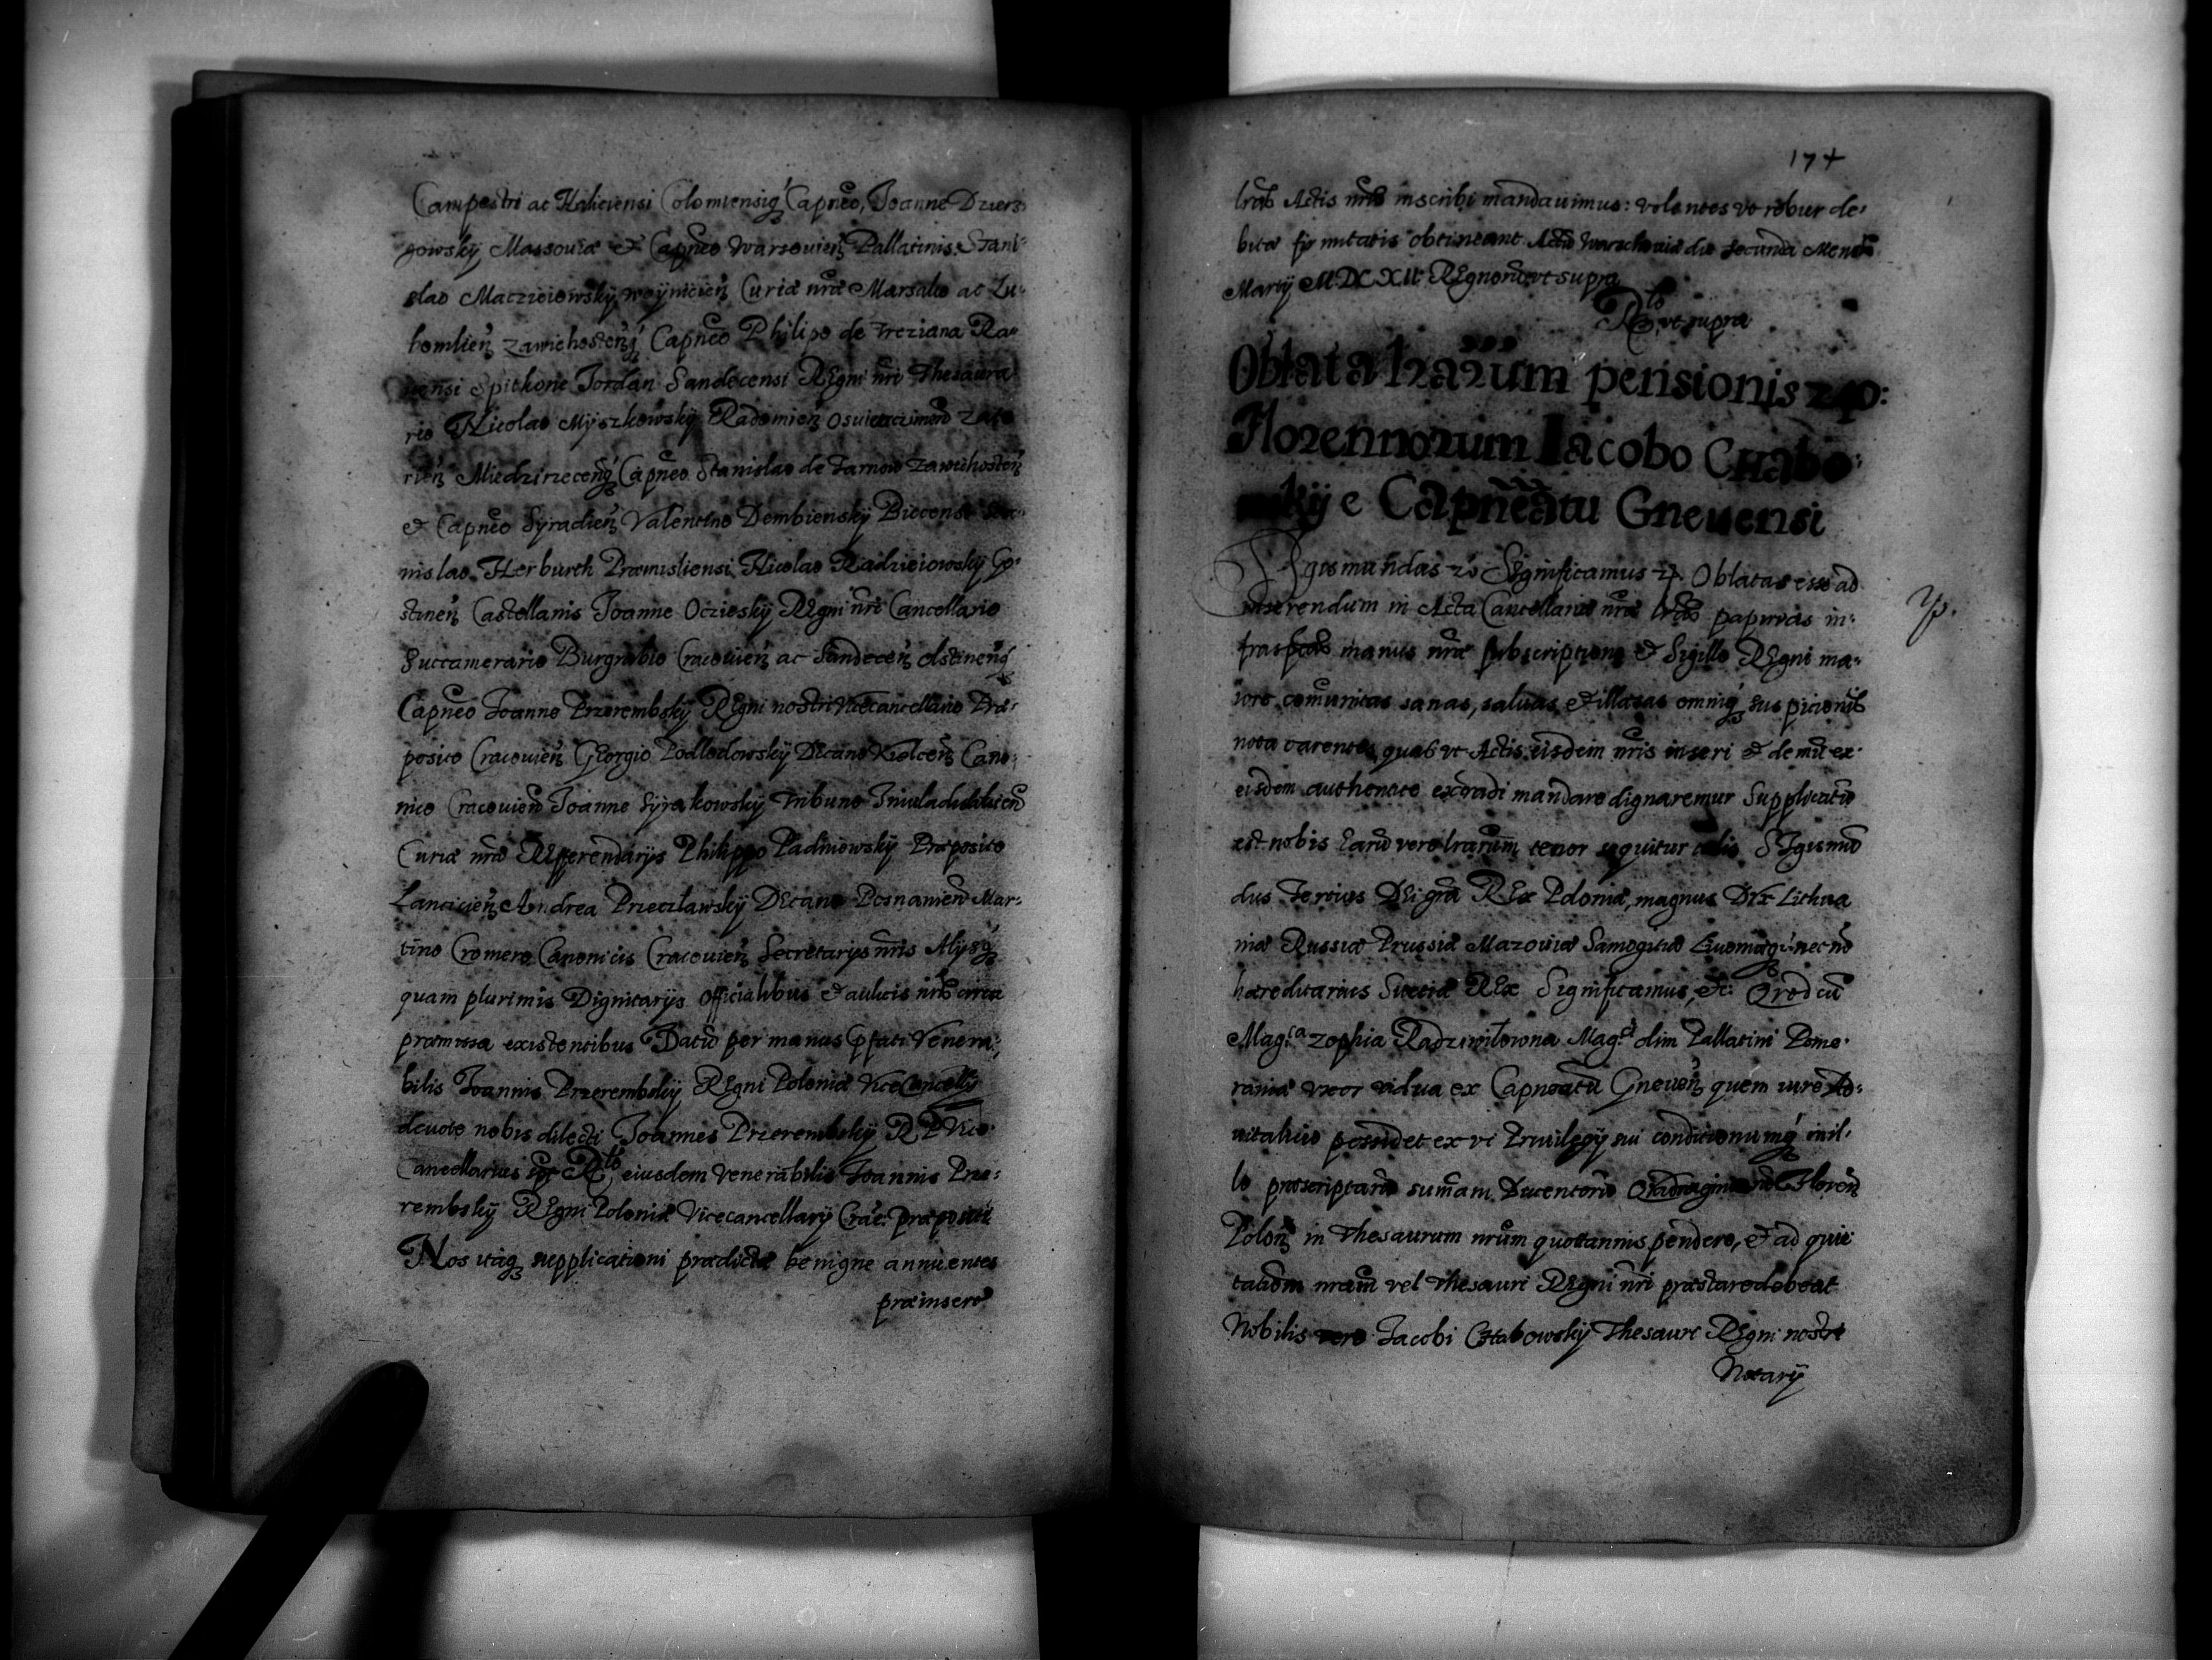 Campestri ac Haliciensi Colomiensiq́ Capneo, Joanne Dziers-
gowskÿ Massouiæ & Capneo Warsouien̄ Pallatinis. Stani-
slao Maczieiowskÿ woÿnicien̄ Curiæ nrae Marsalco ac Lu-
bomlien̄ Zawichosten̄q́ Capneo Philipo de Treziana Ra-
uensi Spithone Jordan Sandecensi REgni nri Thesaura
rio Nicolao Mÿszkowskÿ Radomien̄ Zato
rien̄ Miedzirzecen̄q́ Capneo Stanislao de Tarnow Zawichosten̄
& Capneo Sÿradien̄ Valentino Dembienskÿ Biecensi Sta-
nislao Herburth Præmisliensi Nicolao Radzieiowskÿ So-
stinen̄ Castellanis Joanne Oczieskÿ REgni nri Cancellario
Succamerario Burgrabio Cracouien̄ ac Sandecen̄ Olstinen̄q́
Capneo Joanne Przerembskÿ REgni nostri Vicecancellario Præ-
posito Cracouien̄ GEorgio Podlodowskÿ DEcano Kielcen̄ Cano-
nico Cracouien̄ Joanne Sÿrakowskÿ Tribuno
Curiæ nræ REfferendarÿs Philippo Padniowskÿ Præposito
Lancicien̄ Andrea Przecławskÿ DEcano Posnanien̄ Mar-
tino Cromero Canonicis Cracouien̄ Secretarÿs nris Alÿsq́
quam plurimis Dignitarÿs officialibus & aulicis nris circa
præmissa existentibus Datū per manus pfati Venera-
bilis Joannis Przerembskÿ REgni Poloniæ ViceCancellÿ
deuote nobis dilecti Joannes Przerembskÿ R P Vice-
Cancellarius sst Rlo eiusdem Venerabilis Joannis Prze-
rembskÿ REgni Poloniæ Vicecancellarÿ Crac: præpositi
Nos itaq́ supplicationi prædictæ benigne annuentes
præinsero
174
lras Actis nris inscribi mandauimus: volentes vt robur de-
bitæ firmitatis obtineant. Actū Warschouiæ die Secunda Mensis
Martÿ M DC XII REgnorū vt supra
Rlo vt supra
Oblata lrarum pensionis 240:
Florennorum Iacobo CHabo-
wskÿ e Capneatu Gneuensi
SIgismundus &c Significamus &c. Oblatas esse ad
inserendum in Acta Cancellariæ nræ lras papireas in-
frascptas manus nræ subscriptione & Sigillo REgni ma-
iore comunitas sanas, saluas, & illæsas omniq́ suspicionis
nota carentes, quas vt Actis eisdem nris inseri & demū ex
eisdem authentice extradi mandare dignaremur Supplicatū
est nobis Earū vero lrarum tenor sequitur talis SIgismū
dus Tertius DEi gra REx Poloniæ, magnus Dux Lithua
niæ Russiæ Prussiæ Mazouiæ Samogitiæ Liuoniæq́ necnō
hæreditarius Sueciæ REx Significamus, &c: Qvod cū
Mag:ca Zophia Radziwiłowna Mag:ci olim Pallatini Pome-
raniæ vxor vidua ex Capneatū Gneuen̄ quem iure Ad-
uitalitio possidet ex vi Priuilegÿ sui conditionumq́ in il-
lo præscriptarū sumam Ducentorū Quadraginta Floren̄
Polon̄ in Thesaurum nrum quotannis pendere, & ad quie-
tationem nram vel Thesauri REgni nri præstare debeat
Nobilis vero Jacobi CHabowskÿ Thesauri REgni nostri
Notarÿ